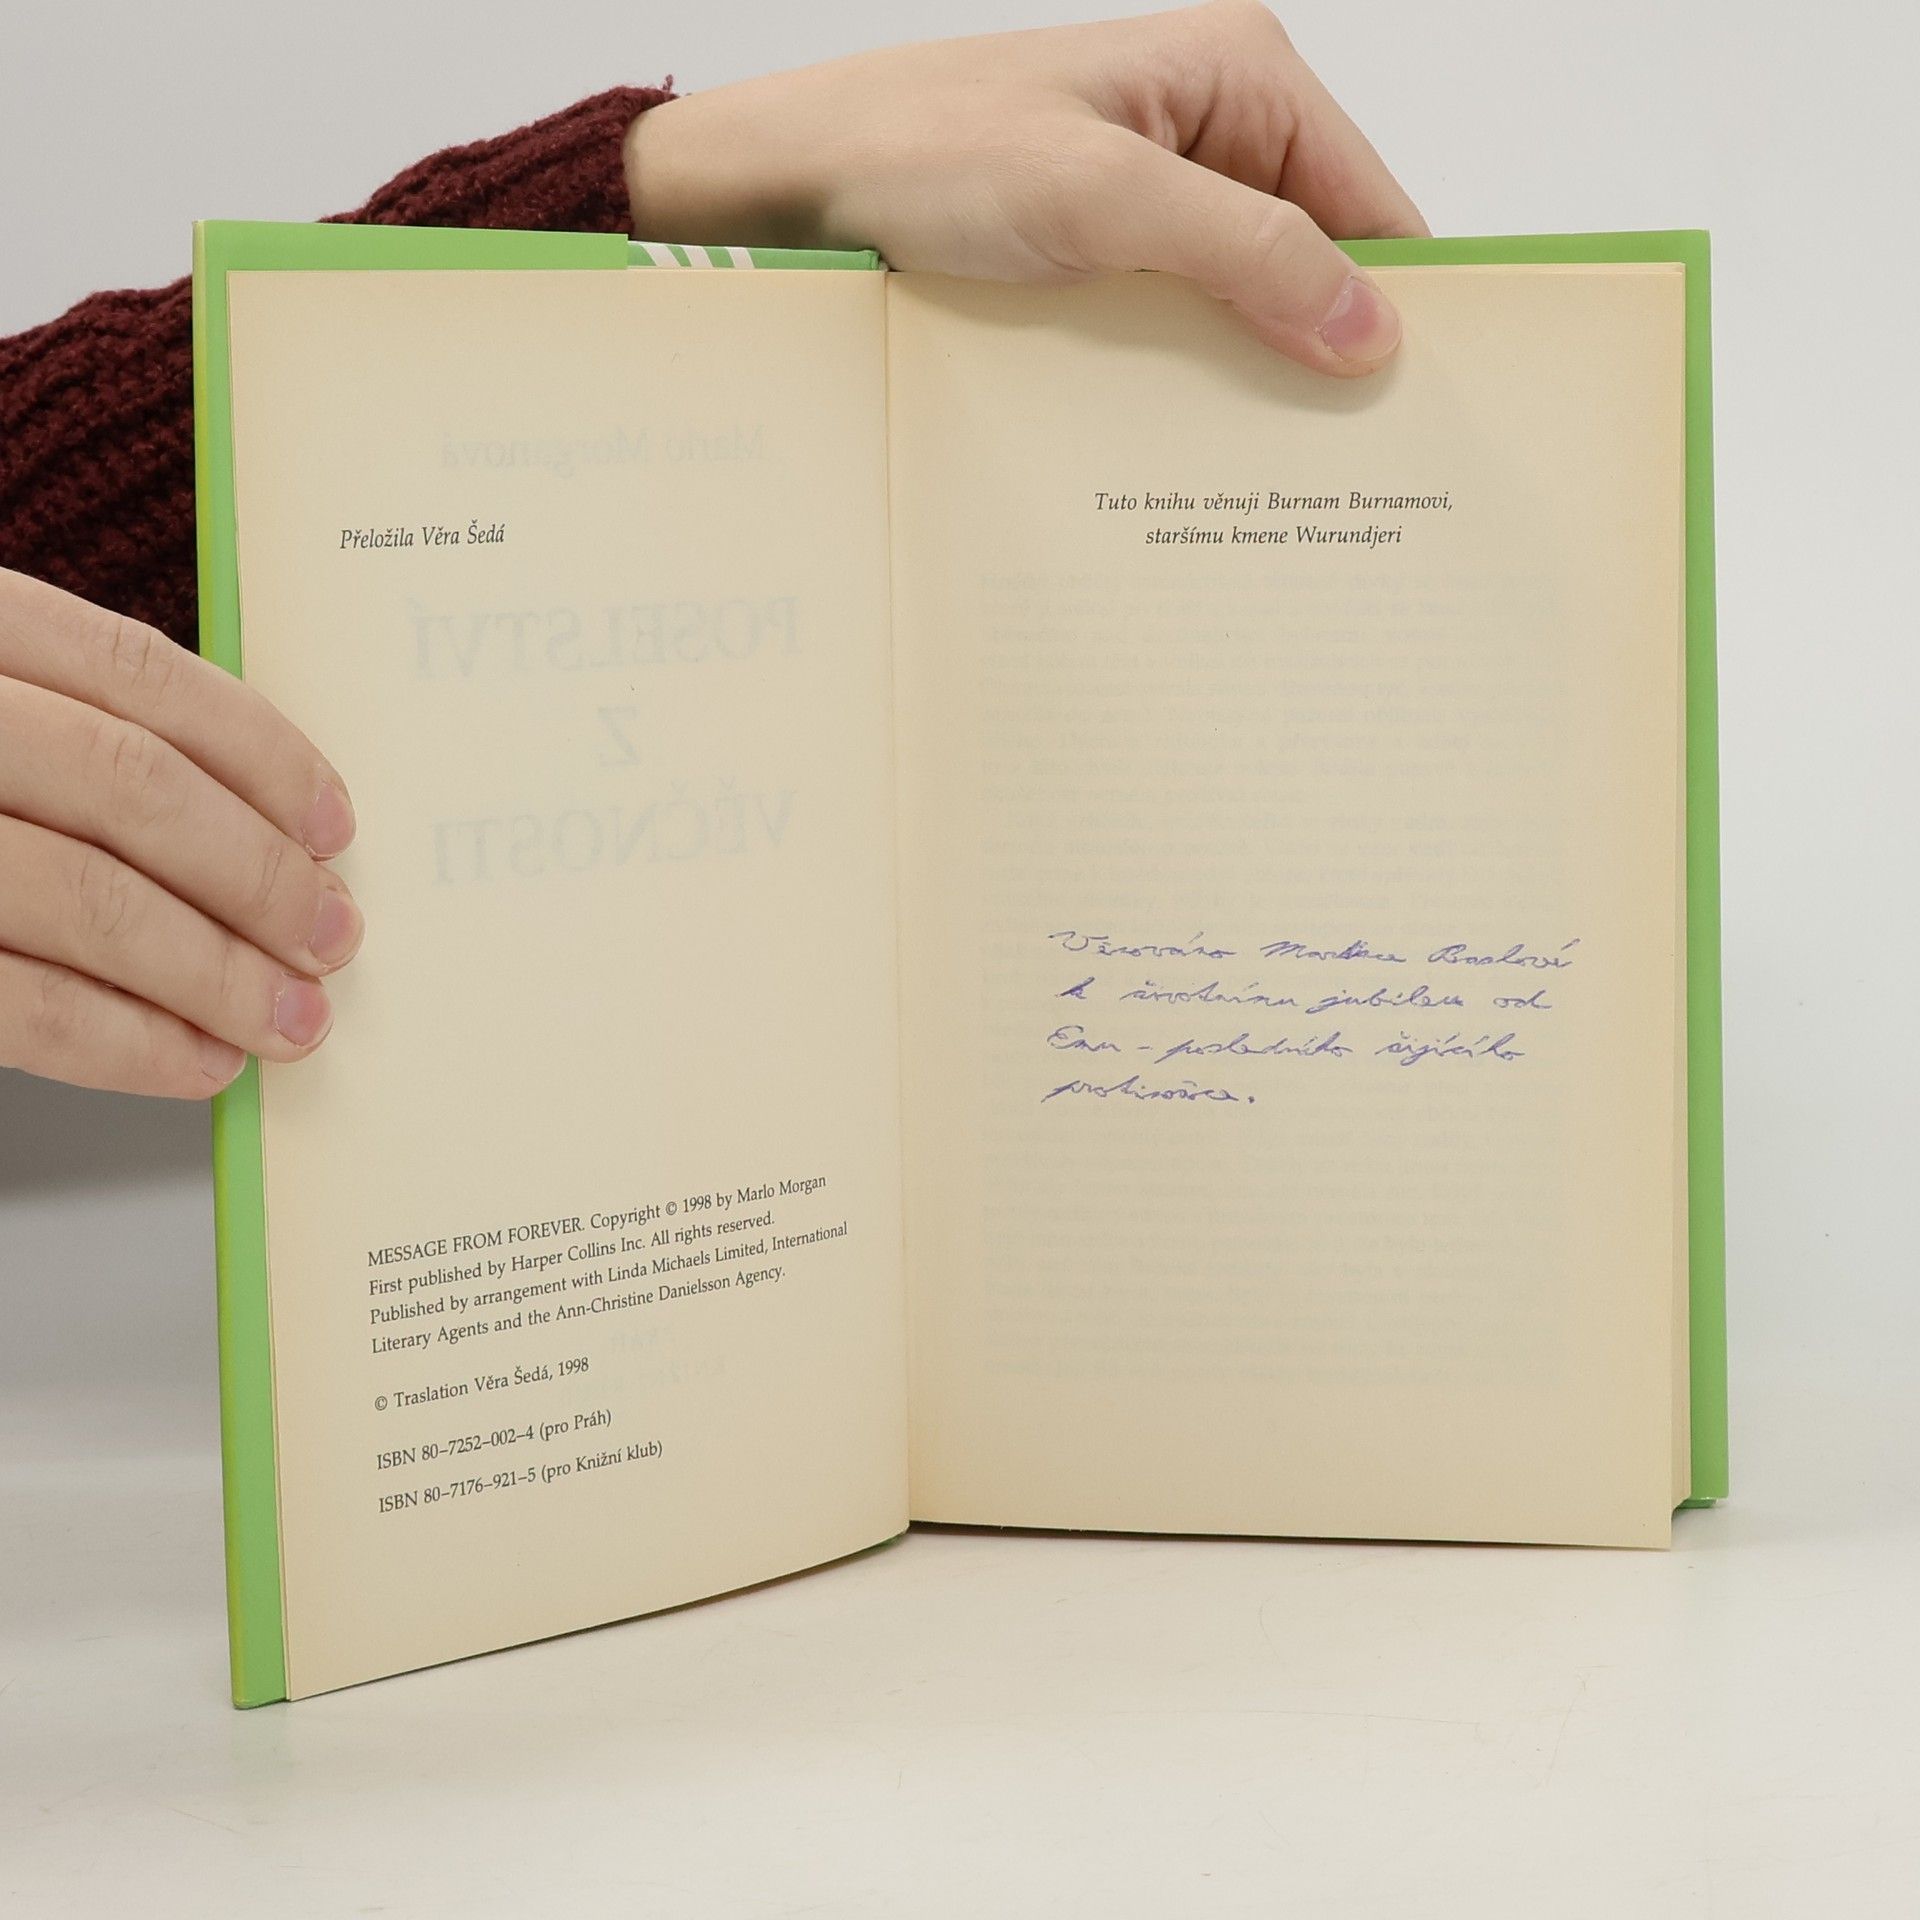 Přeložila Věra Šedá
MESSAGE FROM FOREVER. Copyright © 1998 by Marlo Morgan
First published by Harper Collins Inc. All rights reserved.
Published by arrangement with Linda Michaels Limited, International
Literary Agents and the Ann-Christine Danielsson Agency.
© Traslation Věra Šedá, 1998
ISBN 80–7252–002–4 (pro Práh)
ISBN 80–7176–921–5 (pro Knižní klub)
Tuto knihu věnuji Burnam Burnamovi,
staršímu kmene Wurundjeri
Věnováno
k životnímu jubileu od
Emu – posledního žijícího
protinožce.
Marlo Morganová
POSELSTVÍ
Z
VĚČNOSTI